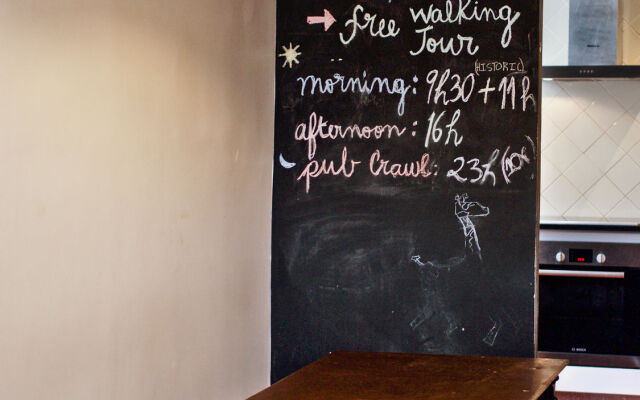 free walking
Tour
(HISTORIC)
morning: 9h30 + 11h
afternoon: 16h
pub Crawl: 23h (10€)
BOSCH